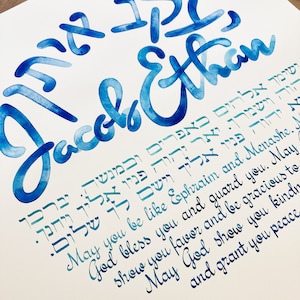 איתן
Jacob Ethan
אלהים כאפרים וכמנשה. יברכך
וישמרך. יאר יהוה פניו אליך ויחנך.
יהוה פניו אליך וישם לך שלום.
May you be like Ephraim and Menashe.
God bless you and guard you. May
show you favor and be gracious to
May God show you
and grant you peace